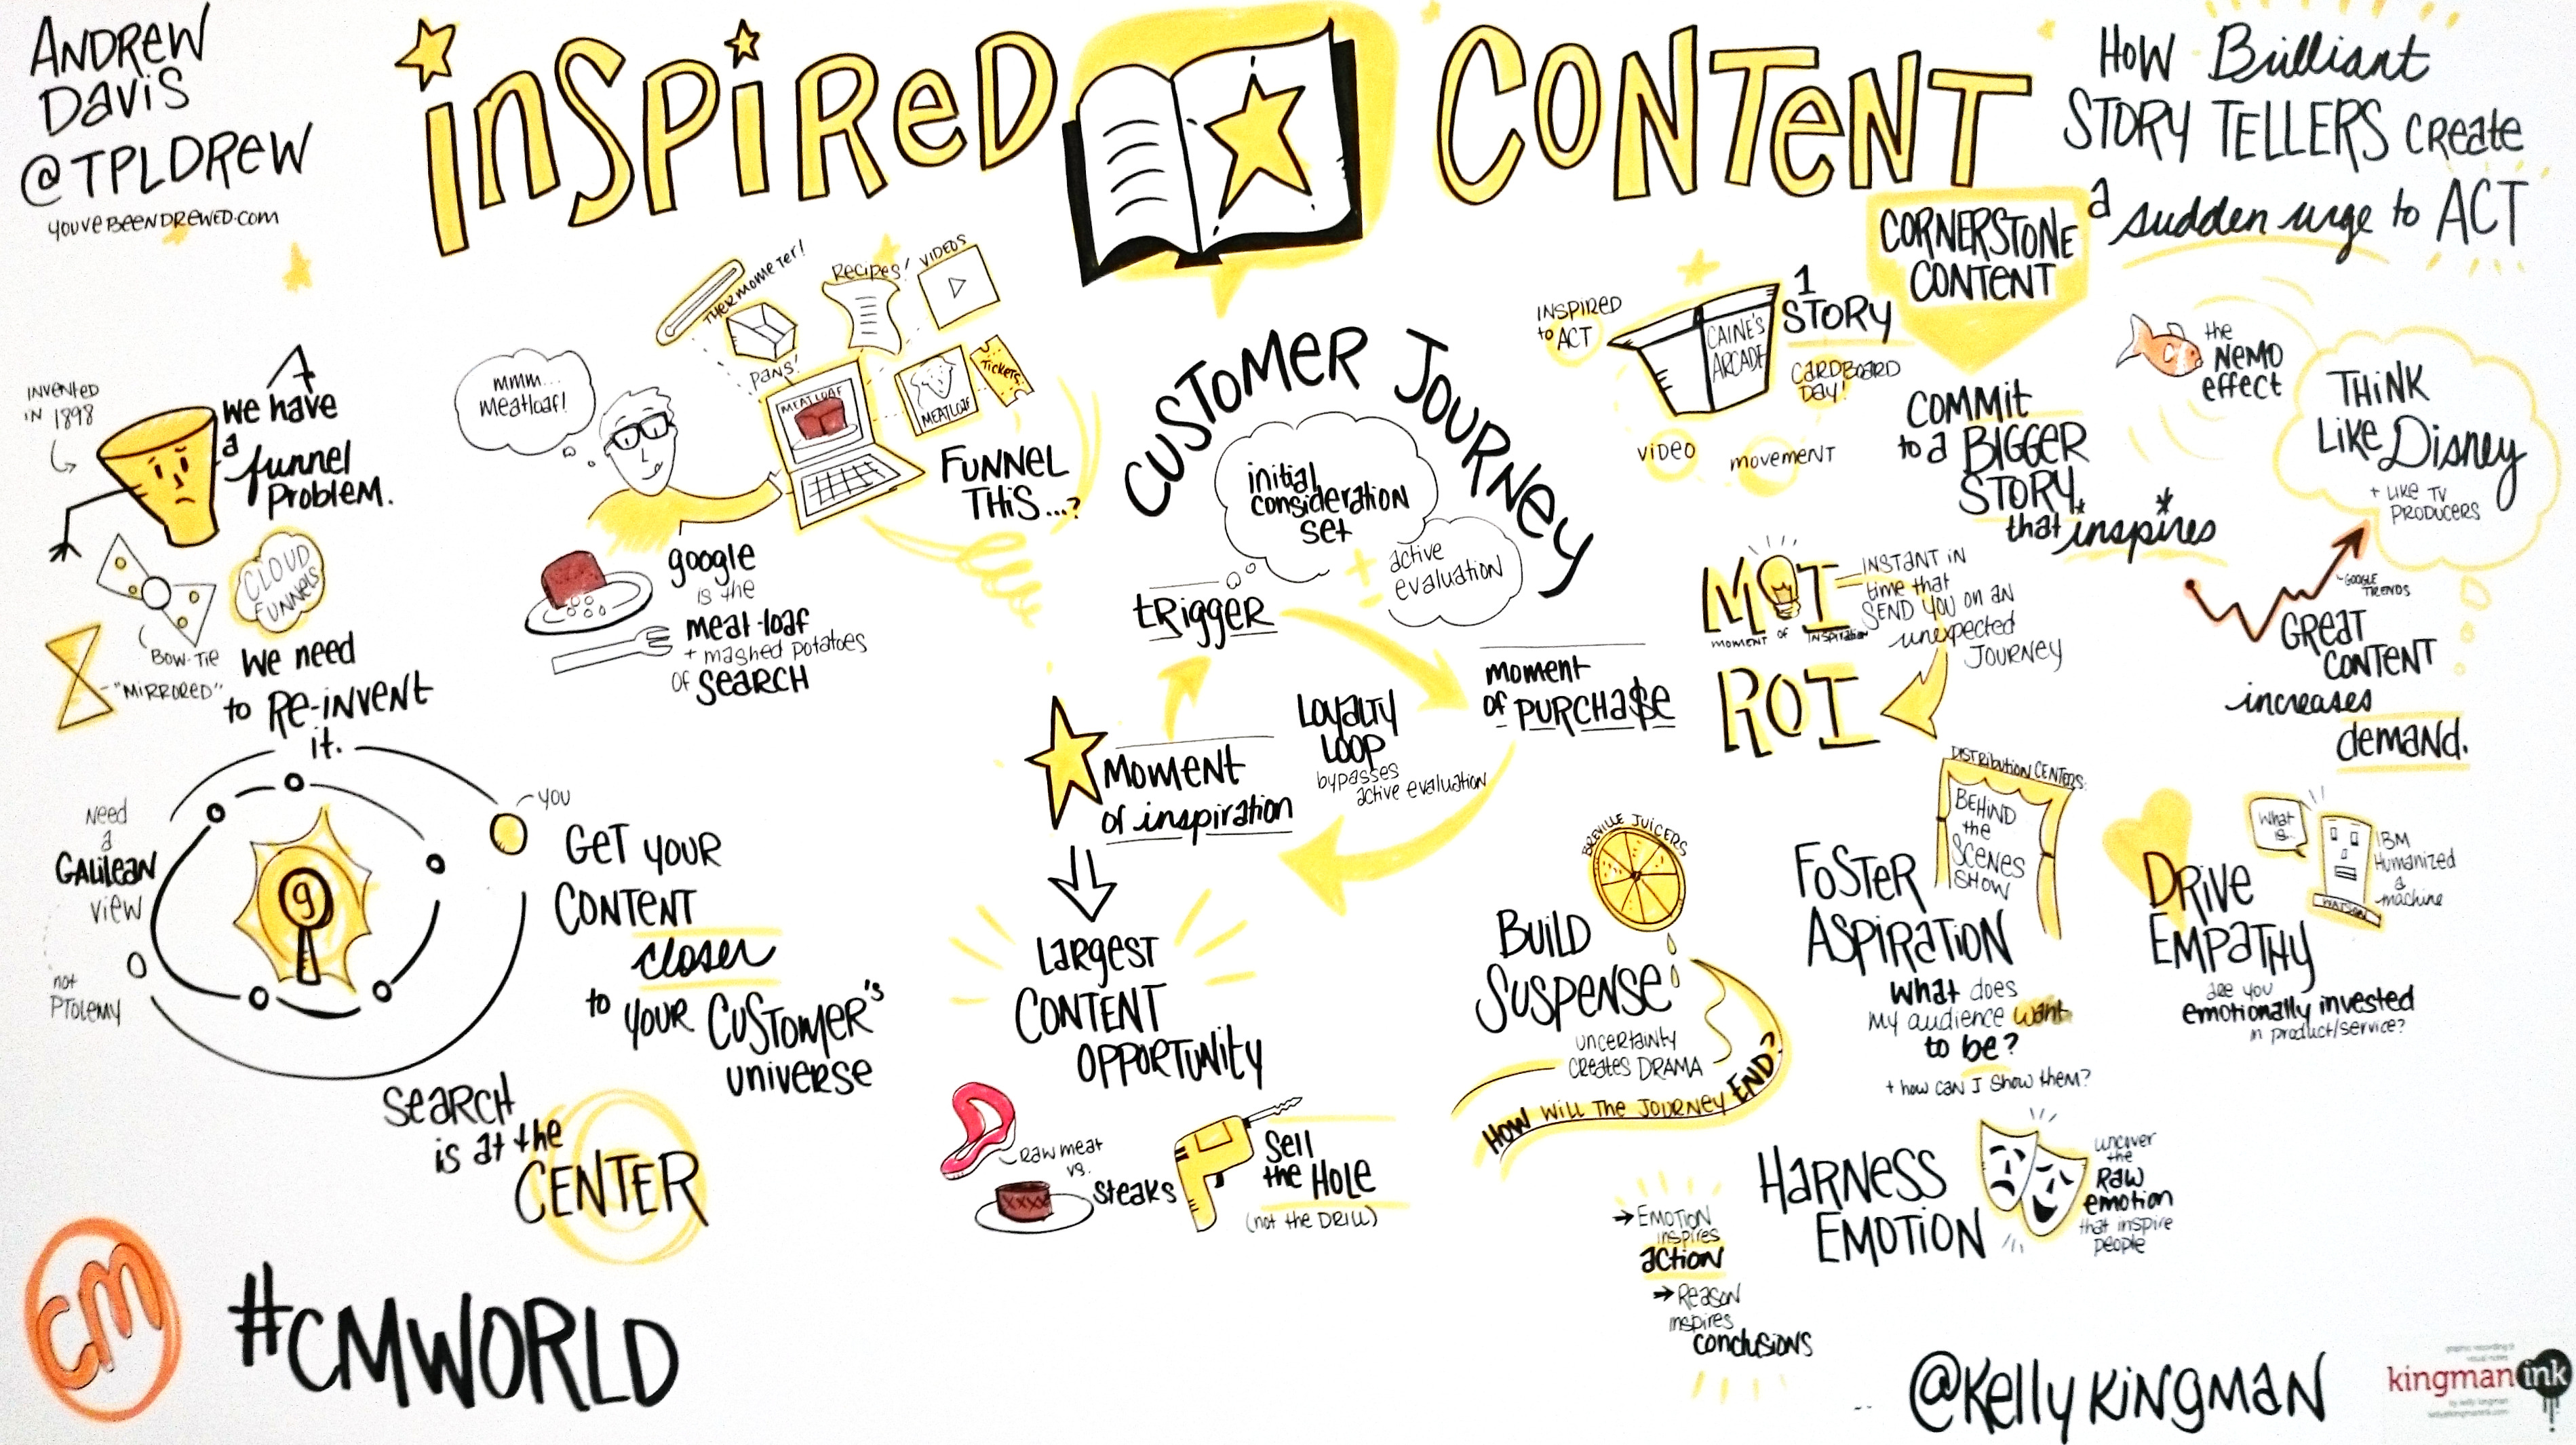 ANDREW
DAVIS
@TPLDREW
YOUVEBEENDREWED.COM
INSPIRED CONTENT
HOW Brilliant
STORY TELLERS create
a sudden urge to ACT
INVENTED
IN 1898
We have
a funnel
PROBLEM.
CLOUD
FUNNELS
BOW-TIE
"MIRRORED"
We need
to RE-INVENT
it.
need
a
GALILEAN
view
not
PTOLEMY
YOU
g
GET YOUR
CONTENT
closer
to YOUR CUSTOMER'S
universe
SEARCH
is at the
CENTER
CM
#CMWORLD
mmm...
meatloaf!
THERMOMETER!
PANS!
RECIPES!
VIDEOS
MEATLOAF
MEATLOAF
TICKETS
FUNNEL
THIS...?
google
is the
meat-loaf
+ mashed potatoes
OF SEARCH
CUSTOMER JOURNEY
initial
consideration
set
+
active
evaluation
TRIGGER
moment
OF PURCHA$E
LOYALTY
LOOP
bypasses
active evaluation
MOMENT
of inspiration
LARGEST
CONTENT
OPPORTUNITY
RAW MEAT
vs.
STEAKS
Sell
the HOLE
(not the DRILL)
CORNERSTONE
CONTENT
INSPIRED
to ACT
CAINE'S
ARCADE
1
STORY
CARDBOARD
DAY!
VIDEO
MOVEMENT
COMMIT
to a BIGGER
STORY
that inspires
the
NEMO
effect
THINK
LIKE Disney
+ LIKE TV
PRODUCERS
GOOGLE
TRENDS
GREAT
CONTENT
increases
demand.
MOI
MOMENT OF INSPIRATION
INSTANT IN
time that
SEND YOU ON AN
unexpected
JOURNEY
ROI
BREVILLE JUICERS
BUILD
SUSPENSE
uncertainty
creates DRAMA
HOW WILL THE JOURNEY END?
DISTRIBUTION CENTERS:
BEHIND
the
SCENES
SHOW
FOSTER
ASPIRATION
What does
my audience want
to be?
+ how can I show them?
What
is...
WATSON
IBM
Humanized
a
machine
DRIVE
EMPATHY
are you
emotionally invested
in product/service?
HARNESS
EMOTION
uncover
the
RAW
emotion
that inspire
people
→ EMOTION
inspires
action
→ REASON
inspires
conclusions
@KELLYKINGMAN
kingman ink